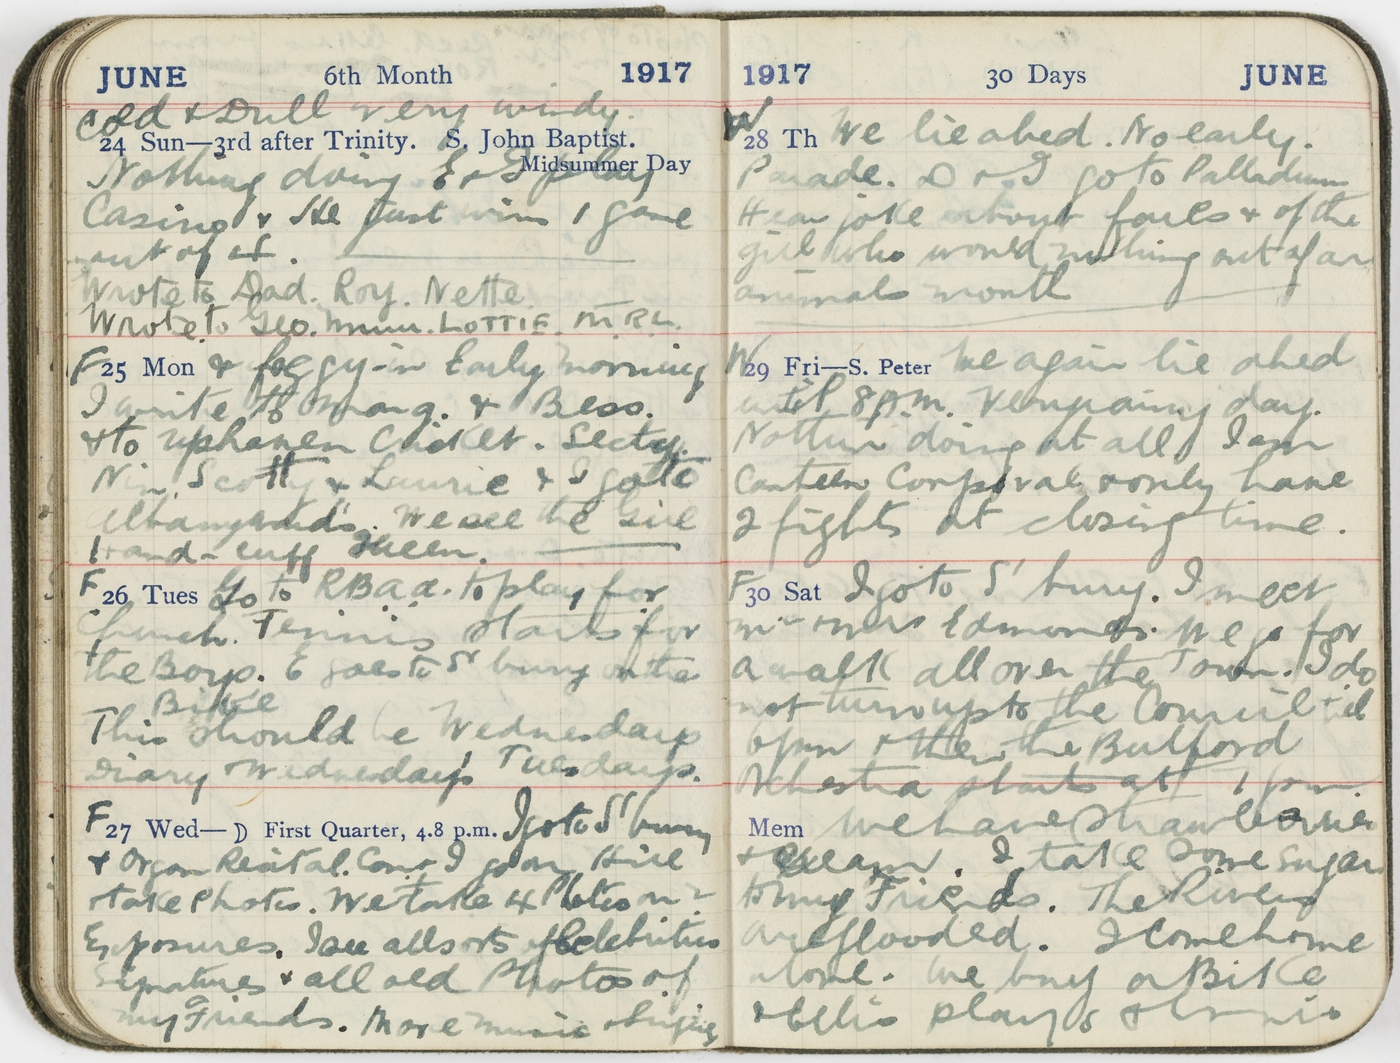 JUNE 6th Month 1917
Cold & Dull very windy.
24 Sun—3rd after Trinity. S. John Baptist.
Midsummer Day
Nothing doing E & I play
Casino & He just wins 1 game
out of
Wrote to Dad. Roy. Nette.
Wrote to Geo. Mum. LOTTIE.
F
25 Mon & foggy in Early morning
I write to & Bess.
& to Uphaven Cricket. Secty.
Nin, Scotty & Laurie & I go to
We see the Girl
Hand-cuff Queen.
F
26 Tues Go to to play for
Church. Tennis starts for
the Boys. E goes to S'bury on the
Bike
This should be Wednesdays
Diary & Wednesdays Tuesdays.
F
27 Wed— ☽ First Quarter, 4.8 p.m. I go to S'bury
& Organ Recital. I go on Hill
& take Photos. We take 4 Plates on 2
Exposures. I see all sorts of Celebrities
Signatures & all old Photos of
my Friends. More music & singing
1917 30 Days JUNE
W
28 Th We lie abed. No early.
Parade. D & I go to Palladium
Hear joke about fowls & of the
girl who would nothing out of an
animals mouth
W
29 Fri—S. Peter We again lie abed
until 8 p.m. Very rainy day.
Nothin doing at all I am
Canteen Corporal & only have
2 fights at closing time.
F
30 Sat I go to S'bury. I meet
Mr & Mrs Edmonds. We go for
a walk all over the Town. I do
not turn up to the Council til
6 pm & then the Bulford
Orchestra starts at 7 pm.
Mem We have Strawberries
& Cream. I take some sugar
to my Friends. The Rivers
are flooded. I come home
alone. We buy a Bike
& Ellis plays tennis